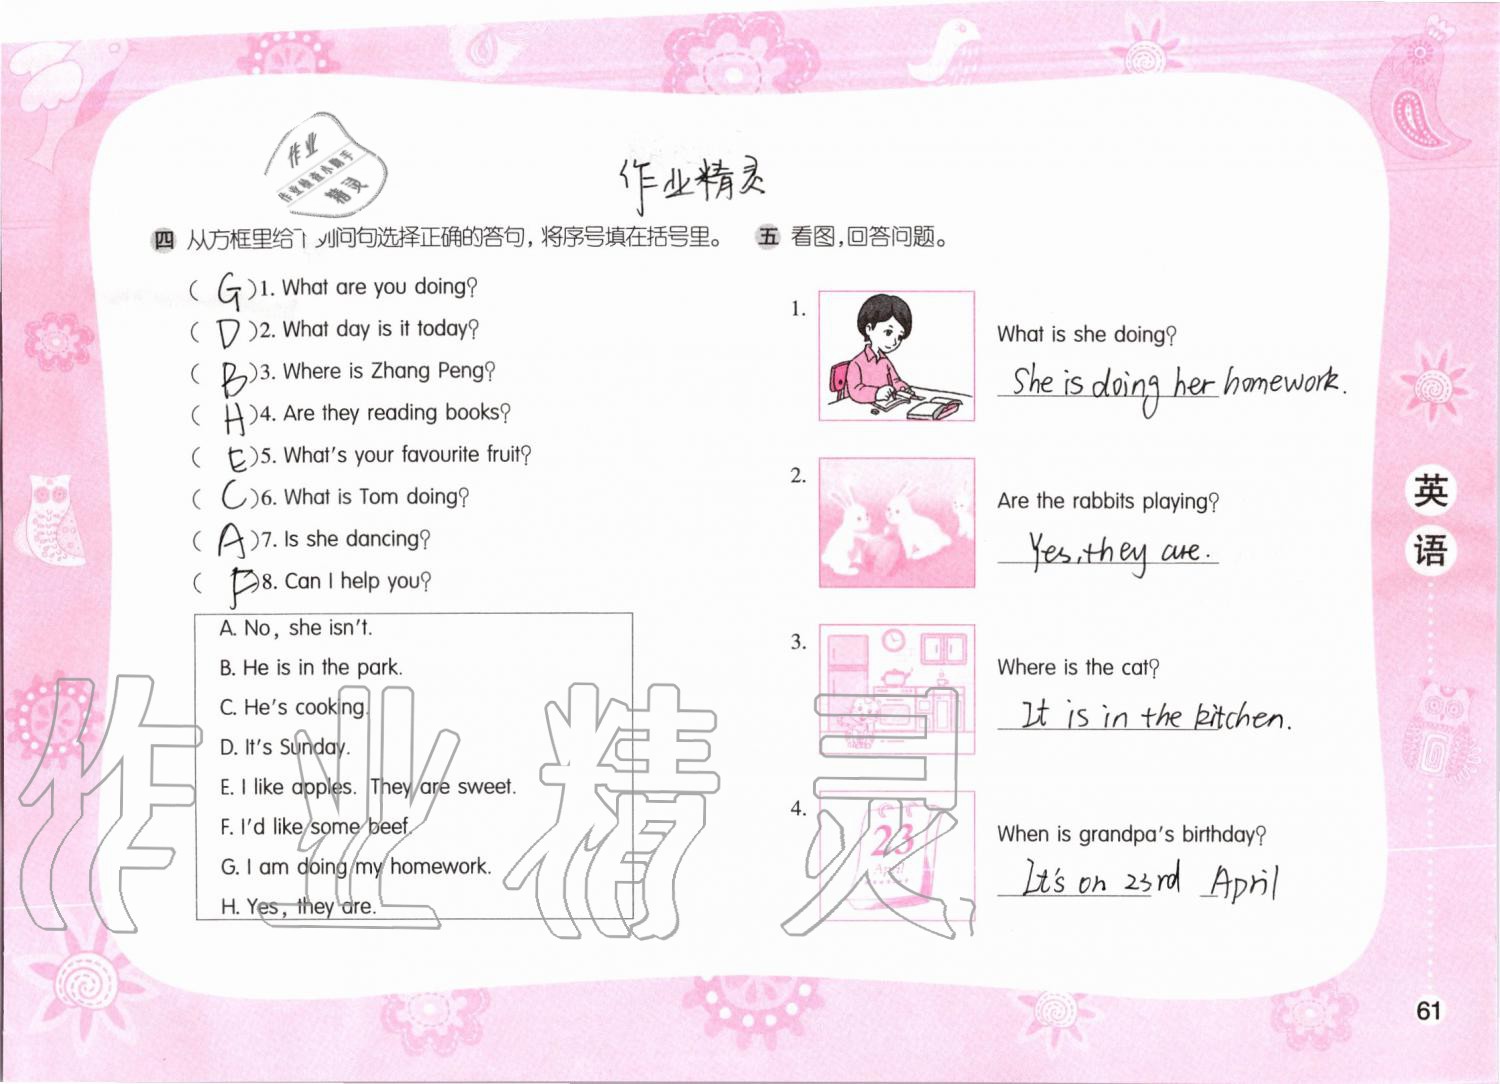 作业
作业检查小助手
精灵
作业精灵
四 从方框里给下列问句选择正确的答句，将序号填在括号里。
( G )1. What are you doing?
( D )2. What day is it today?
( B )3. Where is Zhang Peng?
( H )4. Are they reading books?
( E )5. What's your favourite fruit?
( C )6. What is Tom doing?
( A )7. Is she dancing?
( F )8. Can I help you?
A. No, she isn't.
B. He is in the park.
C. He's cooking.
D. It's Sunday.
E. I like apples. They are sweet.
F. I'd like some beef.
G. I am doing my homework.
H. Yes, they are.
五 看图，回答问题。
1.
What is she doing?
She is doing her homework.
2.
Are the rabbits playing?
Yes, they are.
3.
Where is the cat?
It is in the kitchen.
4.
23
April
When is grandpa's birthday?
It's on 23rd April
作业精灵
英语
61